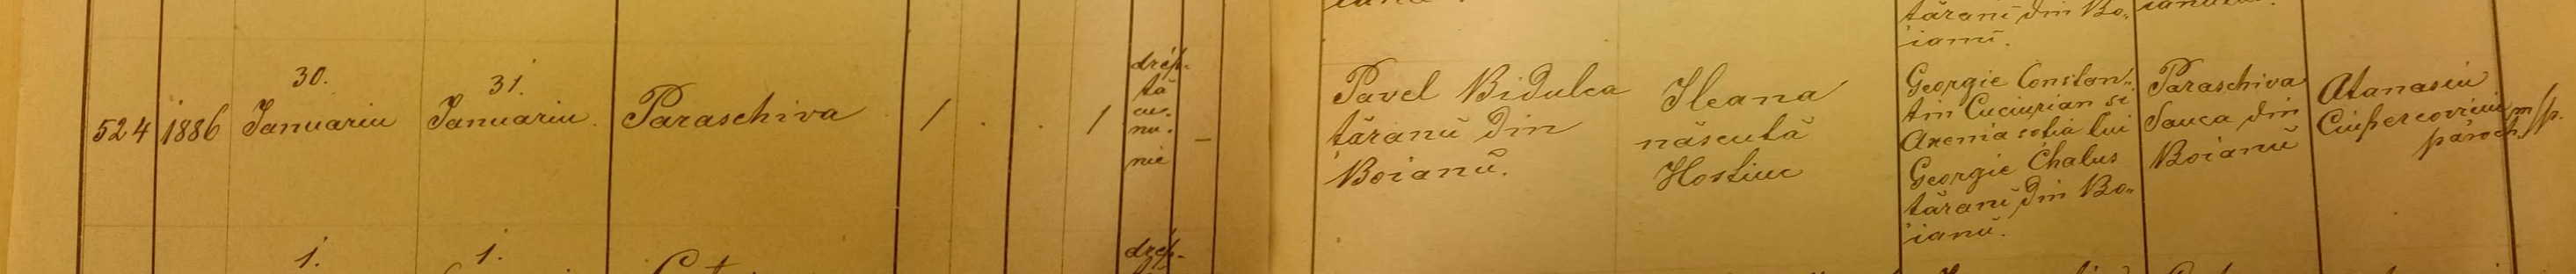 țărani din Bo-
ianŭ.
524 1886 30. Ianuariu 31. Ianuariu. Paraschiva / . . / drep-
tă
cu-
nu-
nie –
Pavel Bidulca
țăranŭ din
Boianŭ.
Ileana
născută
Hostiuc
Georgie Constan-
tin Cuciurian si
Axenia sotia lui
Georgie Chalus
țărani din Bo-
ianŭ.
Paraschiva
Sauca din
Boianŭ
Atanasiu
Ciupercoviciu m/p.
paroch
1. 1. drep-